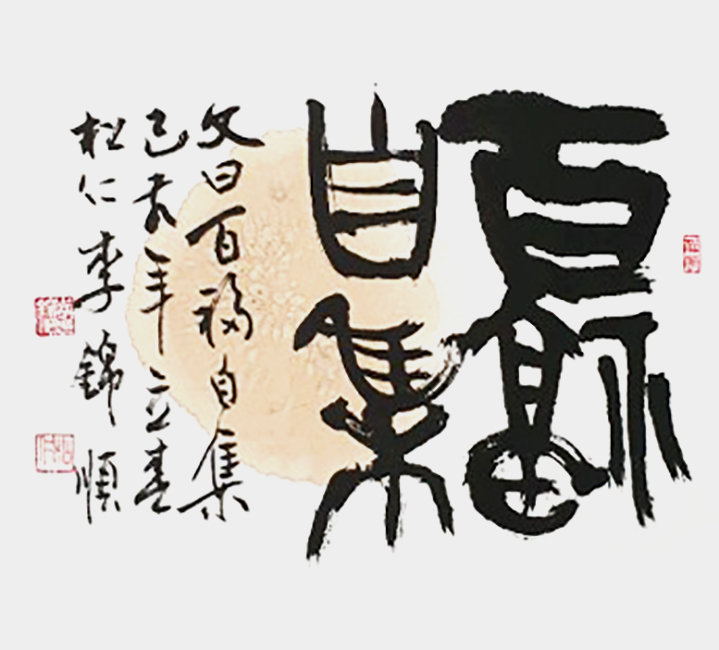 百福
自集
文曰百福自集
己亥年立春
松仁李錦順